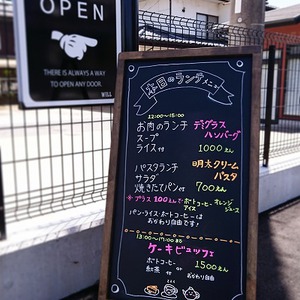 OPEN
THERE IS ALWAYS A WAY
TO OPEN ANY DOOR.
WILL
本日のランチメニュー
12:00〜15:00
お肉のランチ デミグラス
スープ ハンバーグ
ライス付 1000えん
パスタランチ 明太クリーム
サラダ パスタ
焼きたてパン付 700えん
※プラス100えんで ホットコーヒー、オレンジ
アイス ジュース
パン・ライス・ホットコーヒーは
おかわり自由です!
13:00〜17:00
ケーキビュッフェ
ホットコーヒー 1500えん
紅茶 or 付 おかわり自由